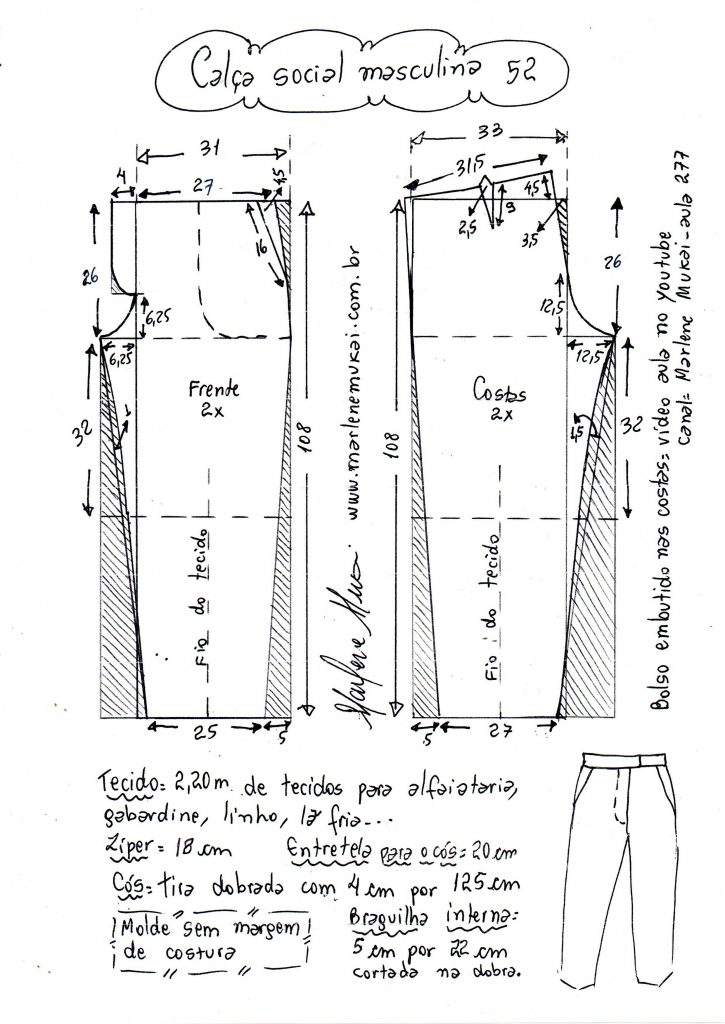 Calça social masculina 52
31
4
27
4,5
16
26
6,25
6,25
Frente
2x
1
32
108
Fio do tecido
25
5
www.marlenemukai.com.br
Marlene Mukai
33
31,5
2,5
9
4,5
3,5
26
12,5
12,5
Costas
2x
1,5
32
108
Fio do tecido
5
27
Bolso embutido nas costas= vídeo aula no youtube
canal= Marlene Mukai-aula 277
Tecido= 2,20m de tecidos para alfaiataria,
gabardine, linho, lã fria...
Zíper= 18 cm
Entretela para o cós= 20 cm
Cós= tira dobrada com 4 cm por 125 cm
Molde sem margem
de costura
Braguilha interna=
5 cm por 22 cm
cortada na dobra.